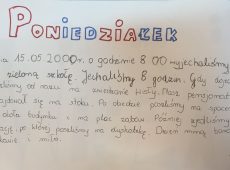 PONIEDZIAŁEK
a 15.05.2000r. o godzinie 8 00 wyjechaliśmy
zieloną szkołę. Jechaliśmy 8 godzin. Gdy
od razu na zwiedzanie Wisły. Nasz pensjonat
się na stoku. Po obiedzie poszliśmy na spacer
około budynku i na plac zabaw. Później
po której poszliśmy na dyskotekę. Dzień minął
i miło.